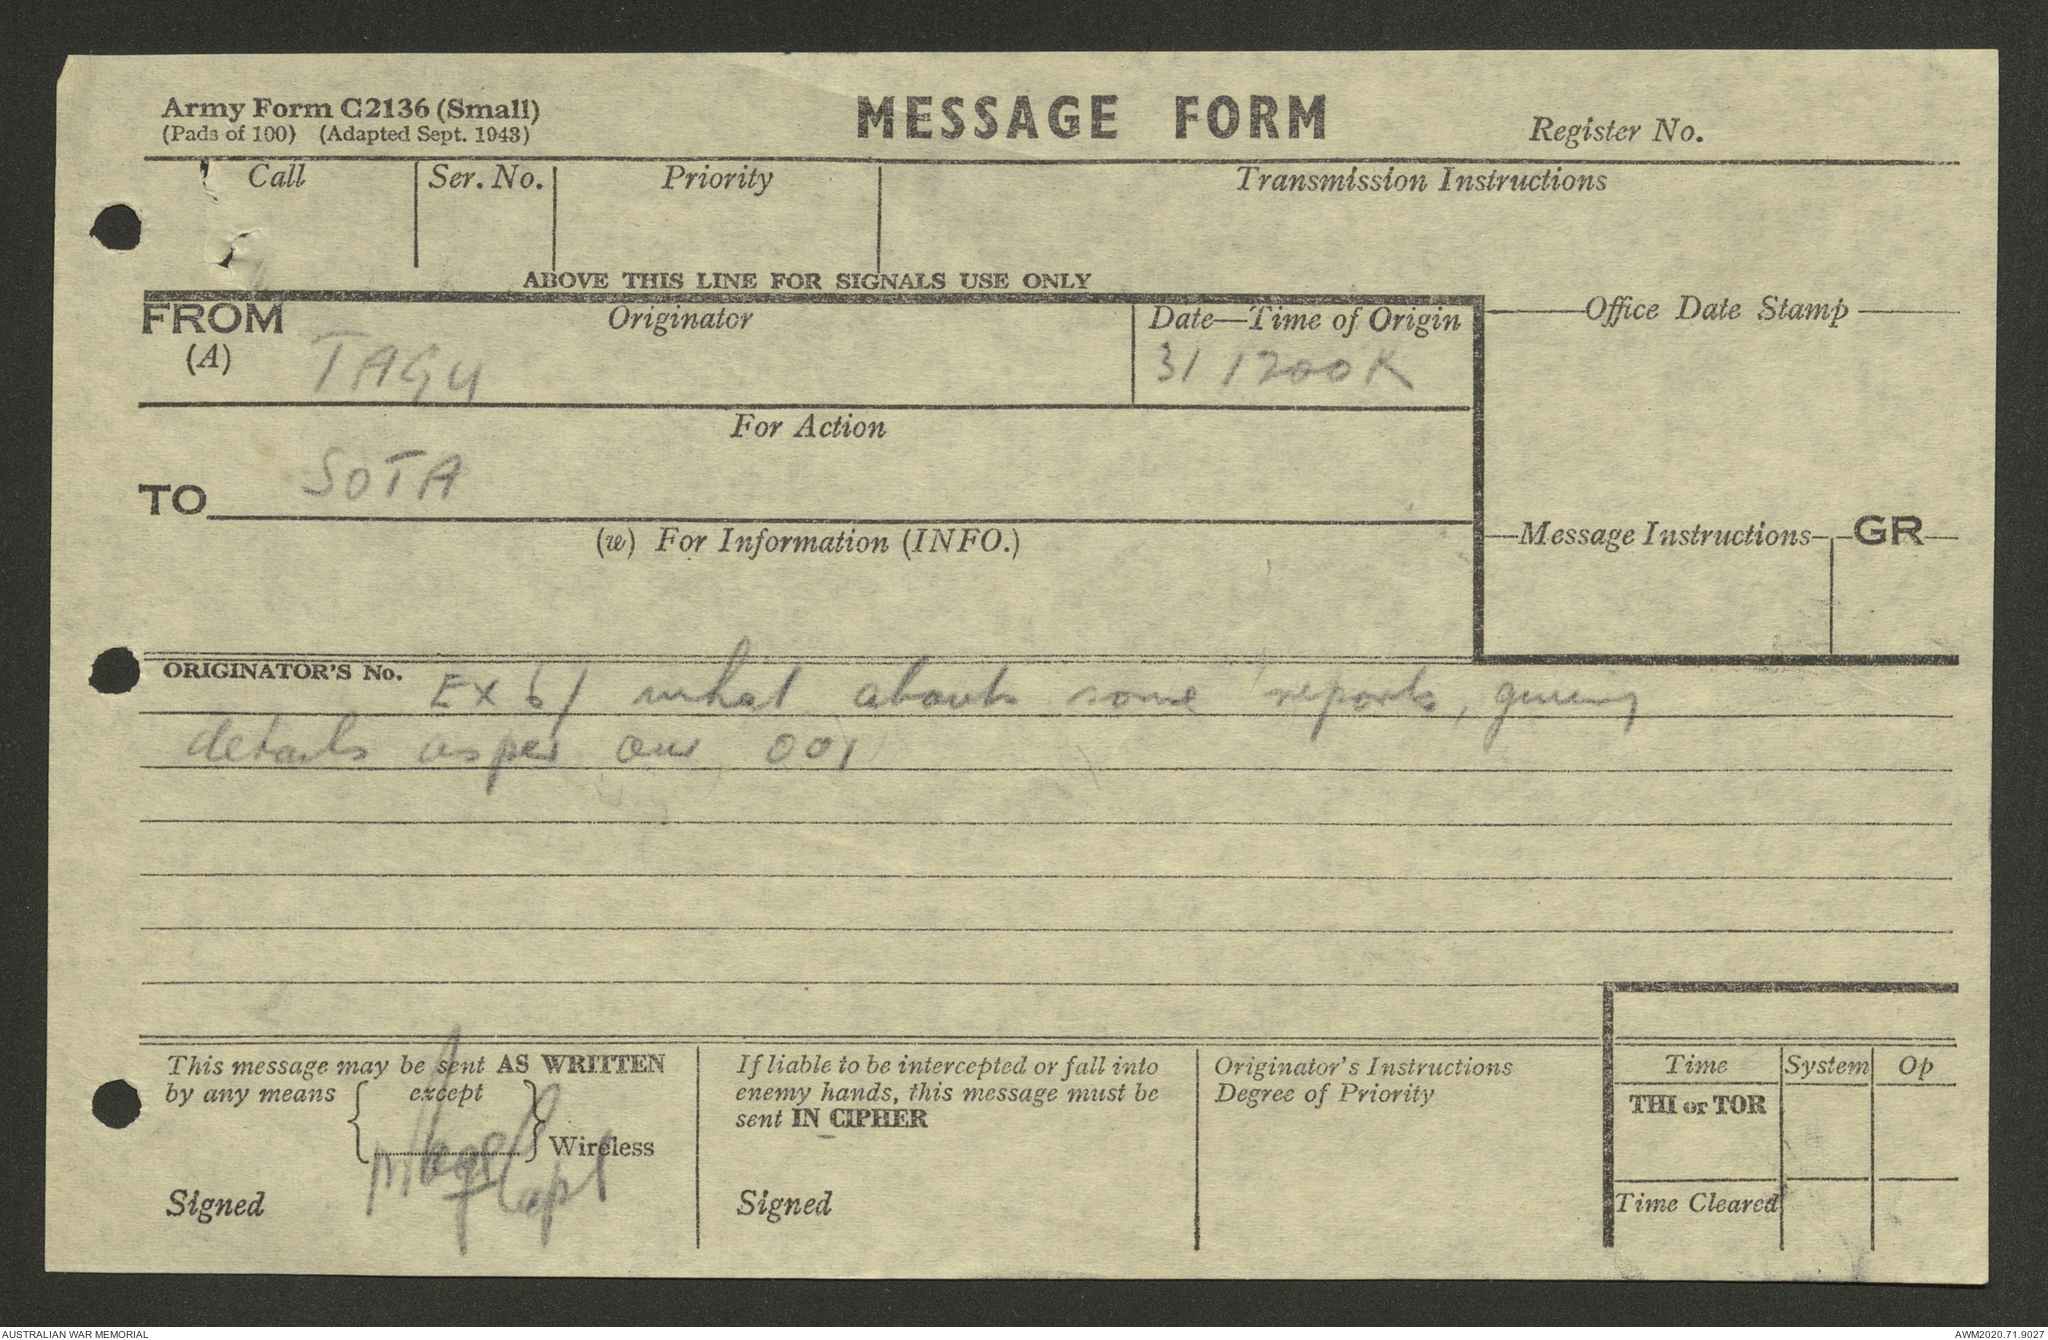 Army Form C2136 (Small)
(Pads of 100) (Adapted Sept. 1943)
MESSAGE FORM
Register No.
Call
Ser. No.
Priority
Transmission Instructions
ABOVE THIS LINE FOR SIGNALS USE ONLY
FROM
(A)
Originator
TAGU
Date—Time of Origin
31 1200K
Office Date Stamp
For Action
TO
SOTA
(w) For Information (INFO.)
Message Instructions
GR
ORIGINATOR'S No.
Ex 6/ what about some reports, giving
details as per our 001
This message may be sent AS WRITTEN
by any means except
Wireless
Signed
Capt
If liable to be intercepted or fall into
enemy hands, this message must be
sent IN CIPHER
Signed
Originator's Instructions
Degree of Priority
Time
System
Op
THI or TOR
Time Cleared
AUSTRALIAN WAR MEMORIAL
AWM2020.71.9027